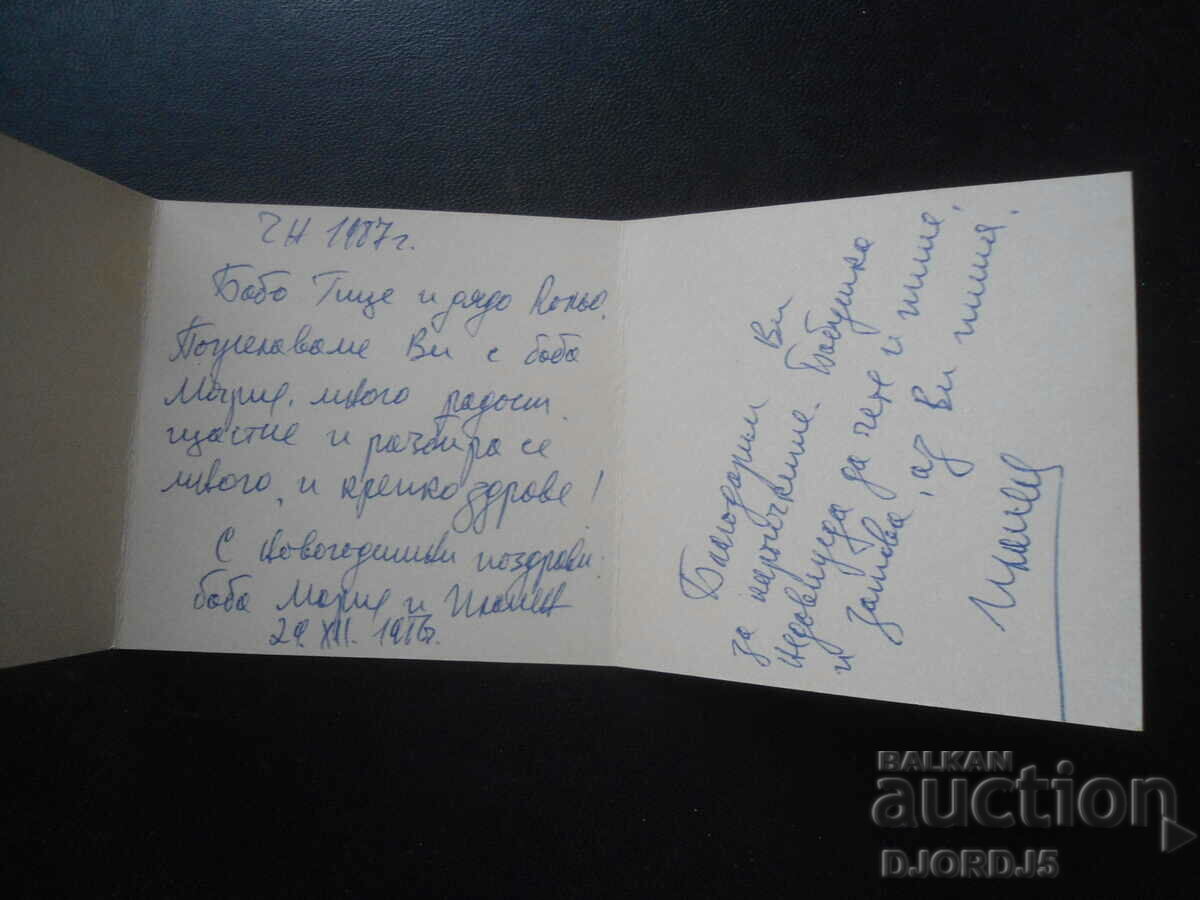 ЧН 1987 г.
Бабо и дядо
Пожелаваме Ви с баба
Мария, много радост,
щастие и разбира се
много, и крепко здраве!
С новогодишни поздрави:
баба Мария и
29. XII. 1986г.
Благодарим Ви
за картичките. Бабушка
недовижда да чете и пише,
и затова, аз Ви пиша.
BALKAN
auction
DJORDJ5